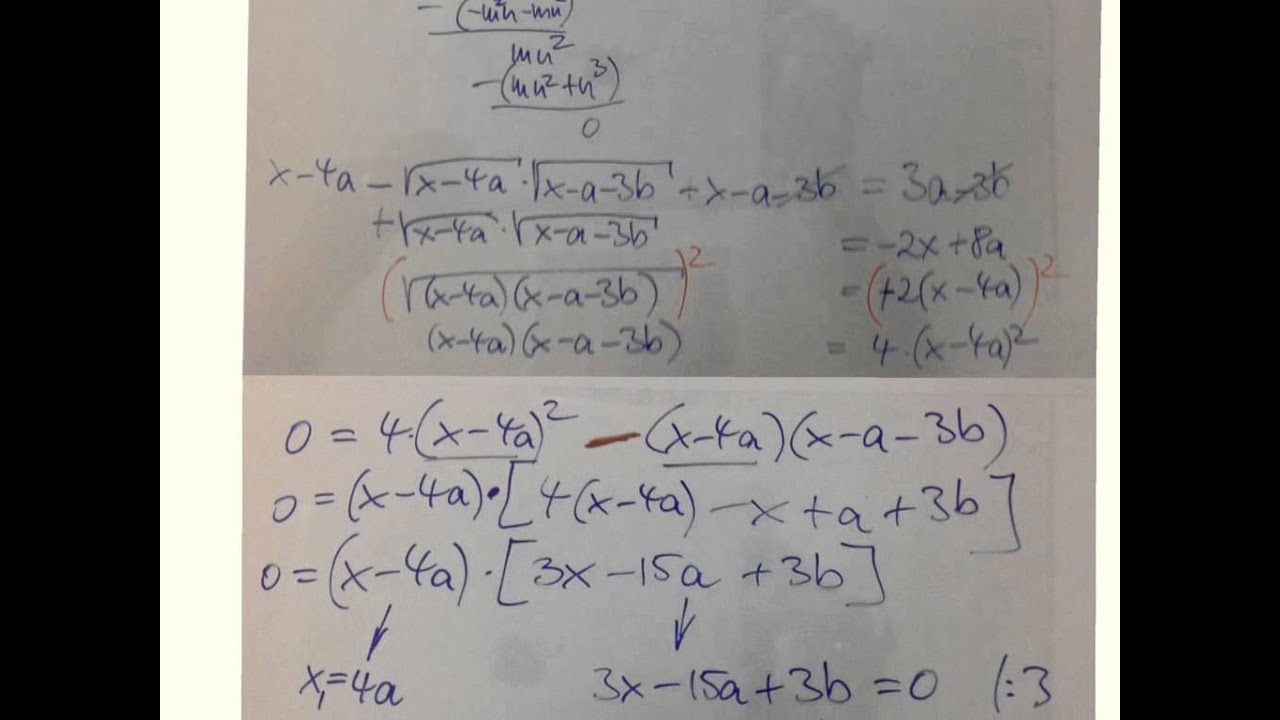 - (-m²n-mn²)
mn²
-(mn²+n³)
0
x-4a-√x-4a·√x-a-3b+x-a-3b = 3a-3b
+√x-4a·√x-a-3b = -2x+8a
(√(x-4a)(x-a-3b))² = (+2(x-4a))²
(x-4a)(x-a-3b) = 4·(x-4a)²
0 = 4·(x-4a)² - (x-4a)(x-a-3b)
0 = (x-4a)·[4(x-4a)-x+a+3b]
0 = (x-4a)·[3x-15a+3b]
x₁=4a 3x-15a+3b=0 /:3